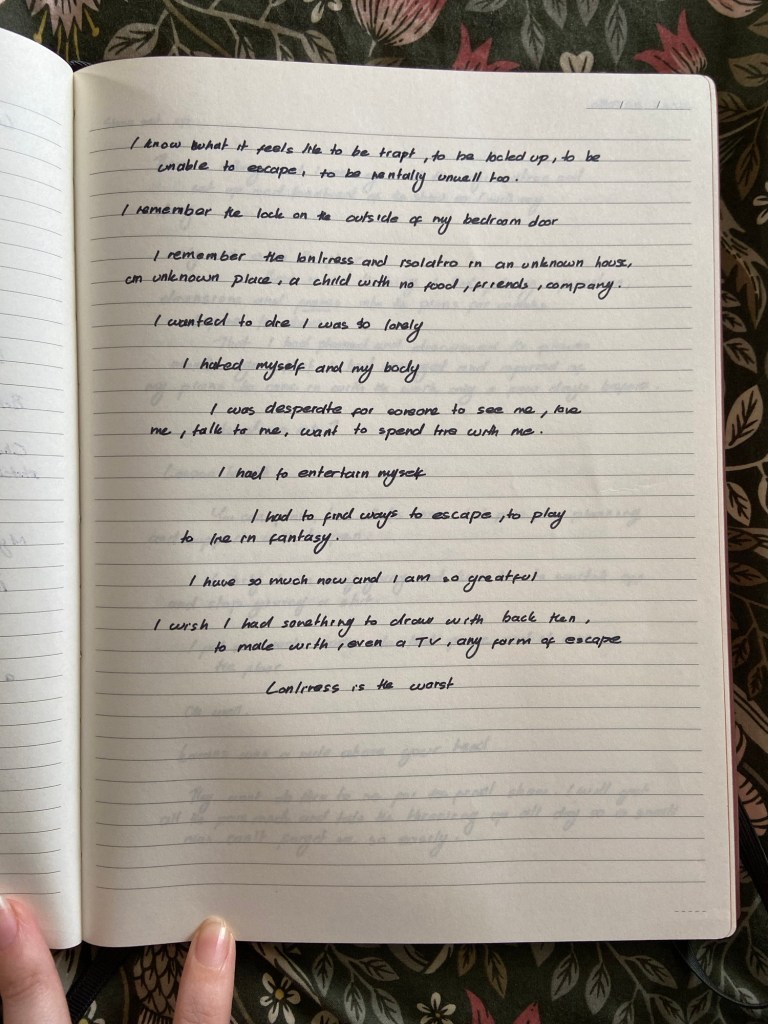 I know what it feels like to be trapt, to be locked up, to be
unable to escape, to be mentally unwell too.
I remember the lock on the outside of my bedroom door
I remember the lonliness and isolatio in an unknown house,
an unknown place, a child with no food, friends, company.
I wanted to die I was so lonely
I hated myself and my body
I was desperate for someone to see me, love
me, talk to me, want to spend time with me.
I had to entertain myself
I had to find ways to escape, to play
to live in fantasy.
I have so much now and I am so greatful
I wish I had something to draw with back then,
to make with, even a TV, any form of escape
Lonliness is the worst